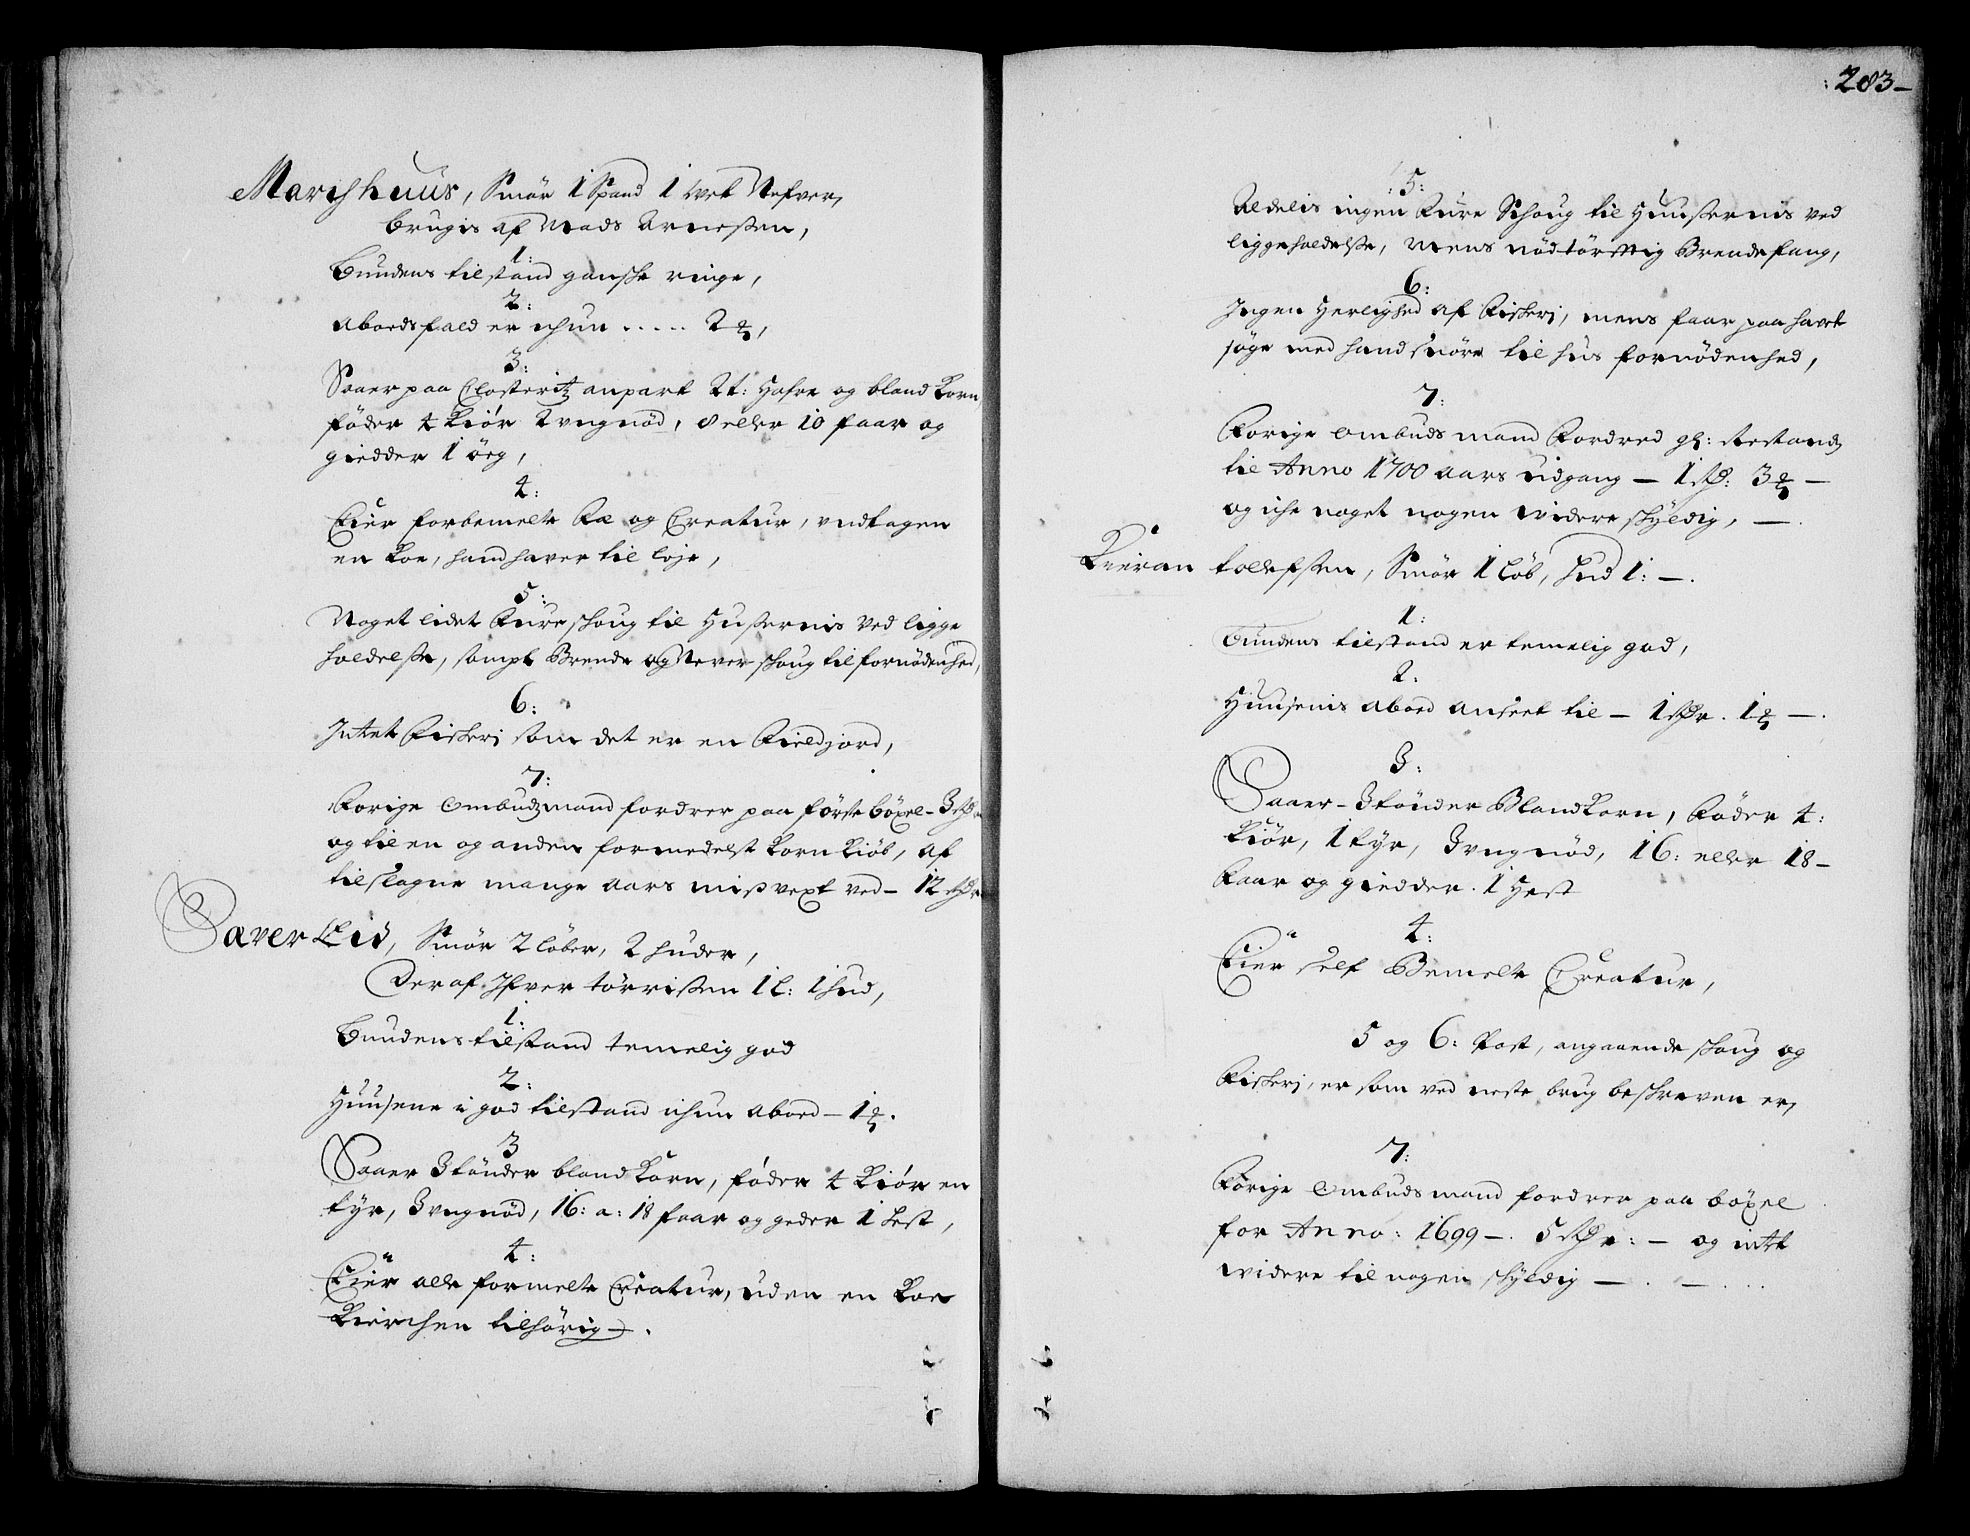 Marchhuus, Smør 1 Spand 1 wet Nefver,
brugis af Mads Arneßen,
1:
Bundens tilstand gansche ringe,
2:
Aboedsfald er ichun ..... 2 ȝ,
3:
Saaer paa Closteritz anpart 2 t: Hafre og bland Korn
føder 4 Kiør 2 vngnød, 8 eller 10 faar og
giedder 1 øeg,
4:
Eier forbemelte Fæ og Creatur, vndtagen
en Koe, hand haver til leje,
5:
Noget lidet Fureschoug til Hußernis Ved ligge
holdelße, sampt Brende og Never schoug til fornødenhed,
6:
Intet Fischeri som det er en Fieldjord,
7:
Forige Ombudzmand fordrer paa første bøxel - 3 rdr
og til en og anden formedelst Korn Kiøb, af
tilslagne mange Aars mißvext ved - 12 rdr
Saver Eid, Smør 2 løber, 2 huder,
Deraf Ifver tørrißen 1 l: 1 hud,
1:
Bundens tilstand temelig god
2:
Huusene i god tilstand ichun aboed - 1 ȝ.
3
Saaer 3 tønder bland Korn, føder 4 Kiør en
tyr, 3 vngnød, 16: a: 18 faar og geder 1 Hest,
4:
Eier alle formelte Creatur, uden en Koe
Kierchen tilhørig.
:283-
:5:
Aldelis ingen Fure Schoug til Huußernis ved
liggeholdelße, mens nødtørfftig Brendefang,
6:
Ingen Herlighed af Fischeri, mens faar paa havet
søge med hand snøre til hus fornødenhed,
7:
Forige Ombuds mand Fordred gl: Restandz
til Anno 1700 Aars udgang - 1 rd: 3 ȝ -
og iche noget nogen widere schyldig, -.
Kieran tolefßen, Smør 1 Løb, hud 1: -.
1:
Bundens tilstand er temelig god,
2:
Huusenis Aboed anseet til - 1 rdr. 1 ȝ -.
3:
Saaer - 3 tønder Blandkorn, Føder 4:
Kiør, 1 tyr, 3 vngnød, 16: eller 18 -
Faar og giedder. 1 Hest
4:
Eier self Bemelte Creatur,
5 og 6: Post, angaaende schoug og
Fischeri, er som ved neste brug beschreven er,
7:
Forige Ombuds mand fordrer paa bøxel
for Anno: 1699 -. 5 rdr: - og intet
widere til nogen schyldig -. -...